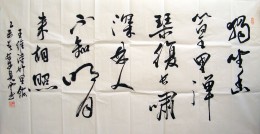 獨坐幽
篁里弹
琴復长嘯
深林人
不知明月
来相照
王维诗竹里馆